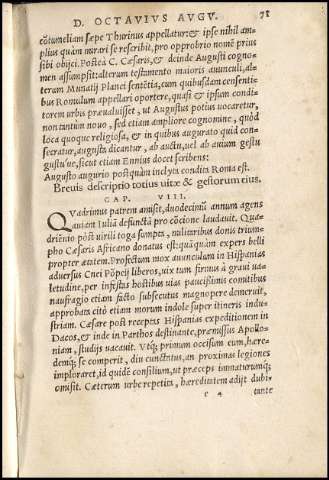 D. OCTAVIVS AVGV. 78
cōtumeliam sæpe Thurinus appellatur: & ipse nihil am-
plius quàm mirari se rescribit, pro opprobrio nomē prius
sibi obijci. Postea C. Cæsaris, & deinde Augusti cogno-
men assumpsit: alterum testamento maioris auunculi, al-
terum Munatij Planci sentētia, cum quibusdam censenti-
bus Romulum appellari oportere, quasi & ipsum condi-
torem urbis, præualuisset, ut Augustus potius uocaretur,
non tantùm nouo, sed etiam ampliore cognomine, quòd
loca quoque religiosa, & in quibus augurato quid con-
secratur, augusta dicantur, ab auctu, uel ab auium gestu
gustu'ue, sicut etiam Ennius docet scribens:
Augusto augurio postquàm inclyta condita Roma est.
Breuis descriptio totius uitæ & gestorum eius.
CAP. VIII.
QVadrimus patrem amisit, duodecimū annum agens
auiam Iuliā defunctā pro cōcione laudauit. Qua-
driēnio pòst uirili toga sumpta, militaribus donis trium-
pho Cæsaris Africano donatus est, quāquàm expers belli
propter ætatem. Profectum mox auunculum in Hispanias
aduersus Cnei Pōpeij liberos, uix tum firmus à graui ua-
letudine, per infestas hostibus uias paucissimis comitibus
naufragio etiam facto subsecutus magnopere demeruit,
approbata citò etiam morum indole super itineris indu-
striam. Cæsare post receptas Hispanias expeditionem in
Dacos, & inde in Parthos destinante, præmissus Apollo-
niam, studijs uacauit. Vtq; primum occisum eum, hære-
demq; se comperit, diu cunctatus, an proximas legiones
imploraret, id quidē consilium, ut præceps immaturumq;
omisit. Cæterum urbe repetita, hæreditatem adijt dubi-
c 4 tante